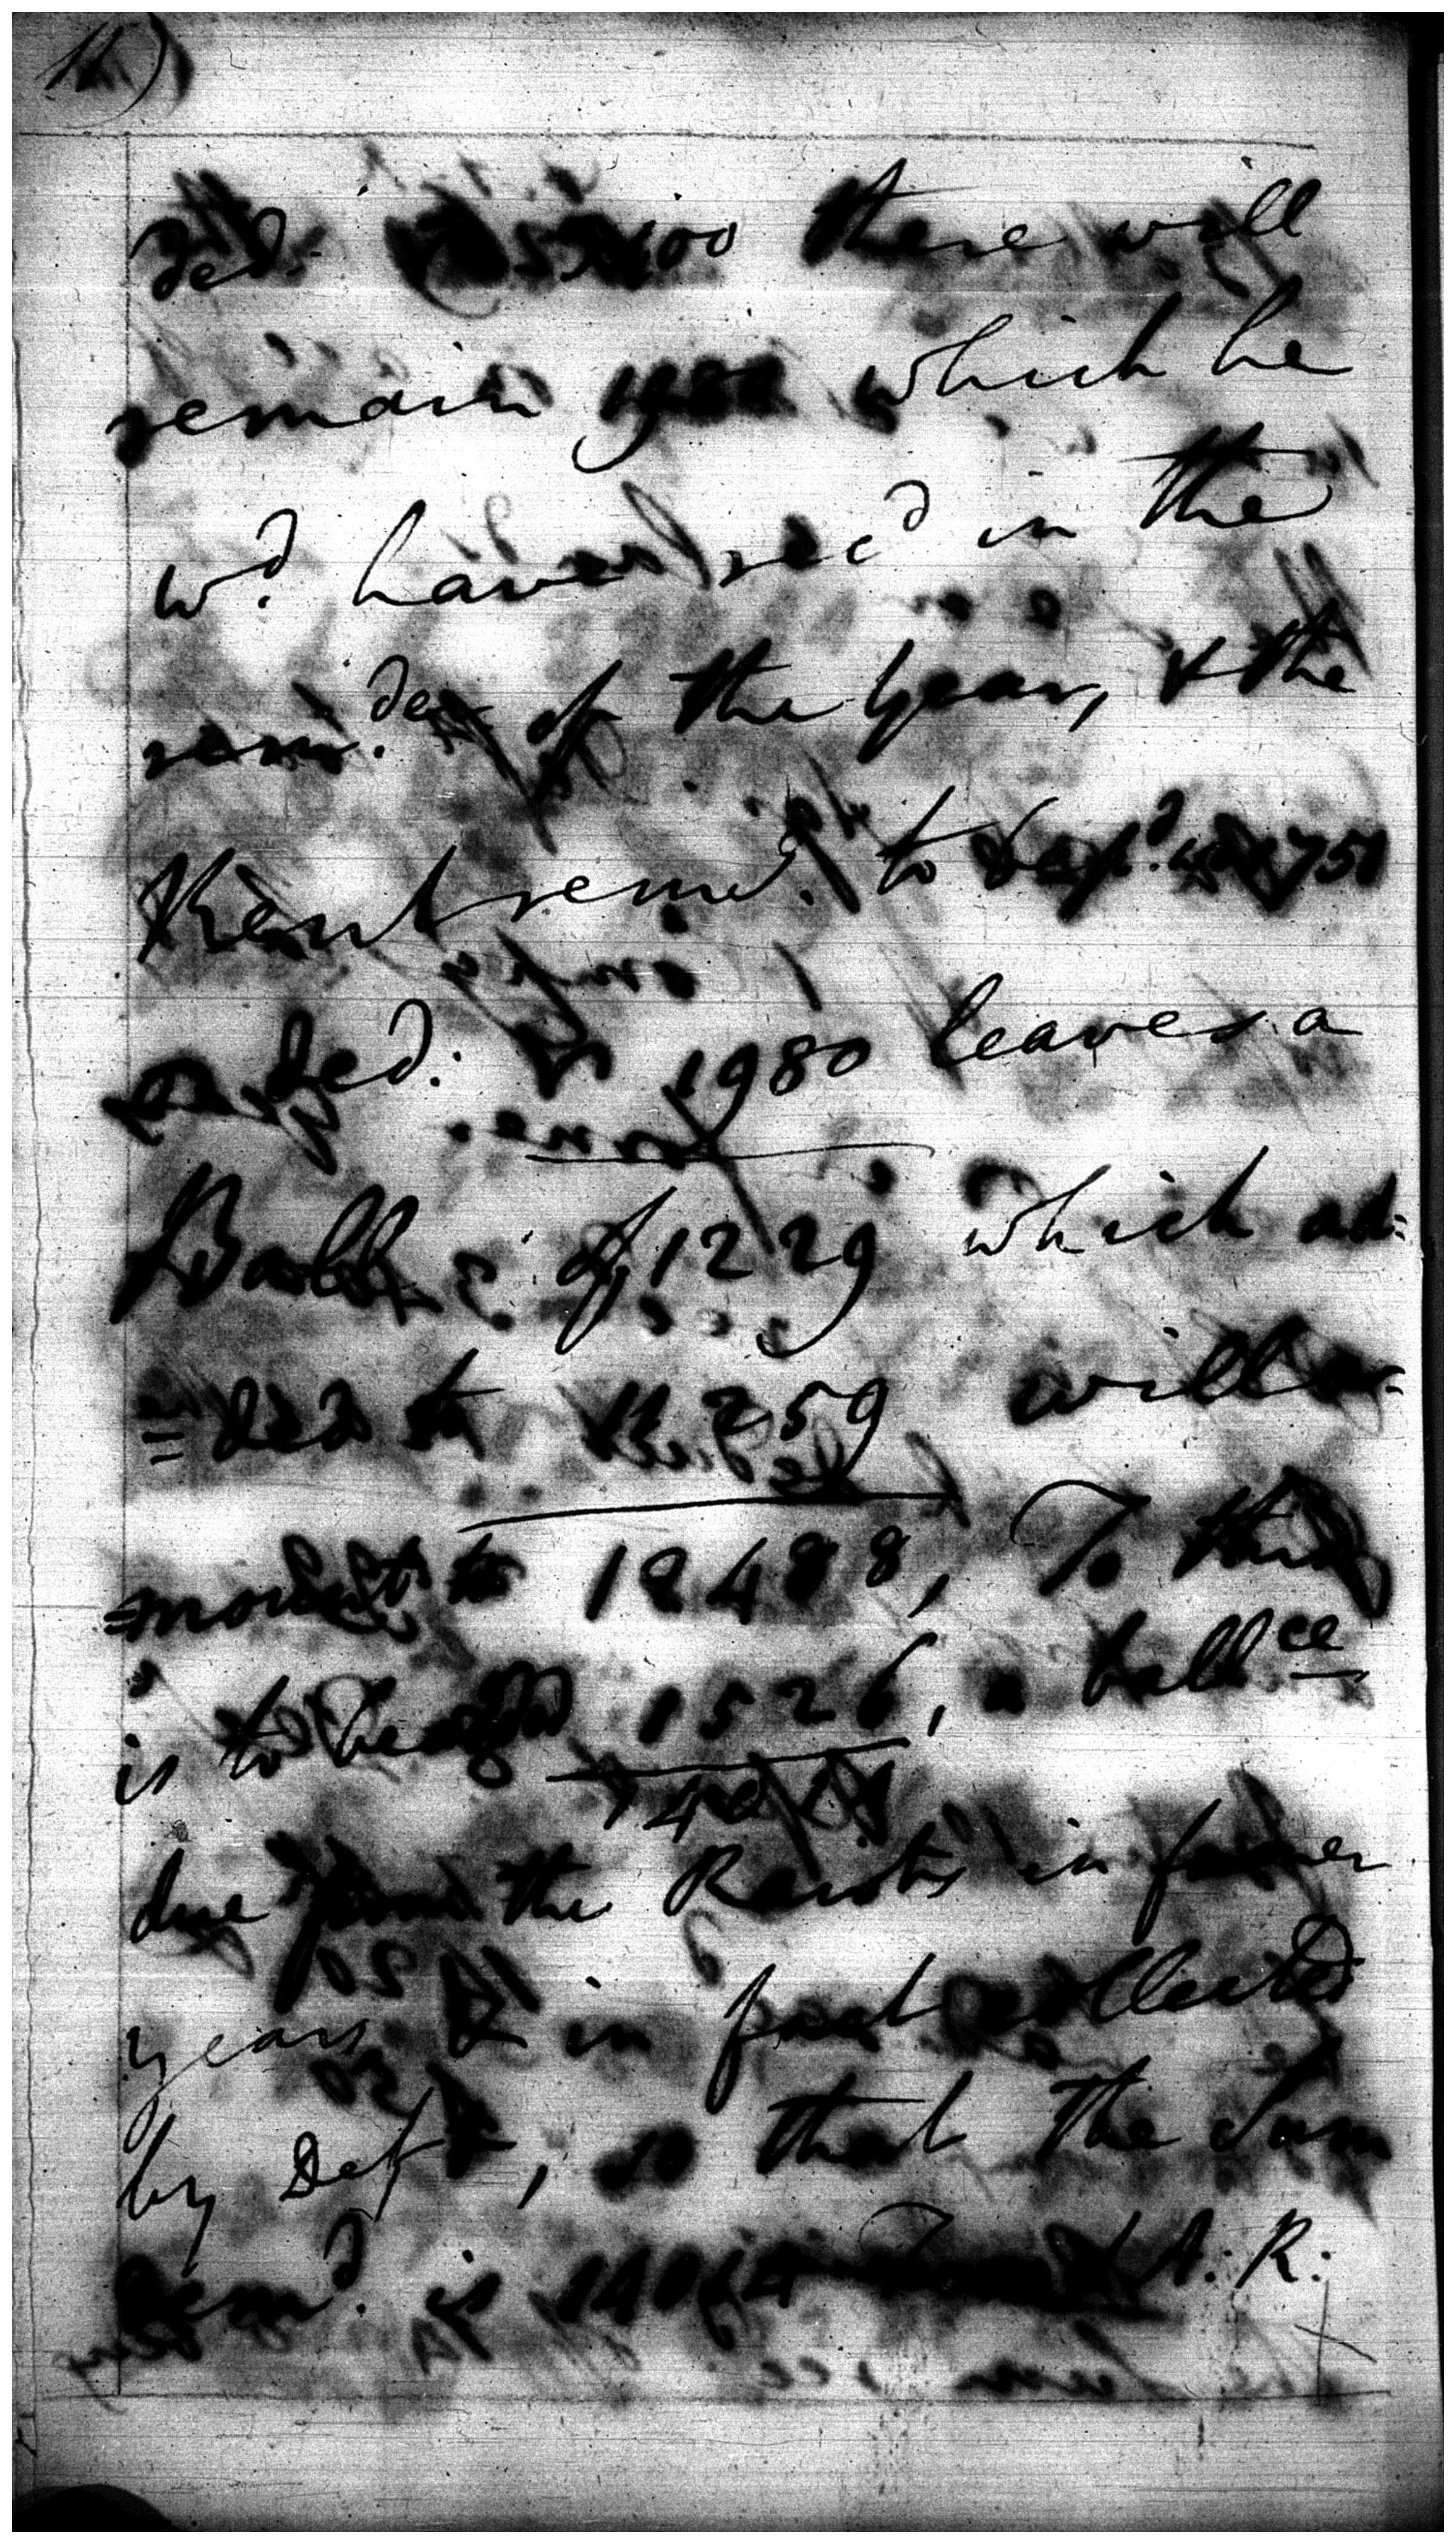 ded. 00 there will
remain 1980 which he
wd. have recd in the
rem.der of the year, & the
Kent remd. to Depd. 751
ded. 1980 leaves a
Ball of 1229 which ad:
=ded to 259 will a-
=mount to 12488, To this
is to be add 1526, a ballce
due from the Raiots in former
years & in fact collected
by Deft, so that the Sum
Demd. is A. R.